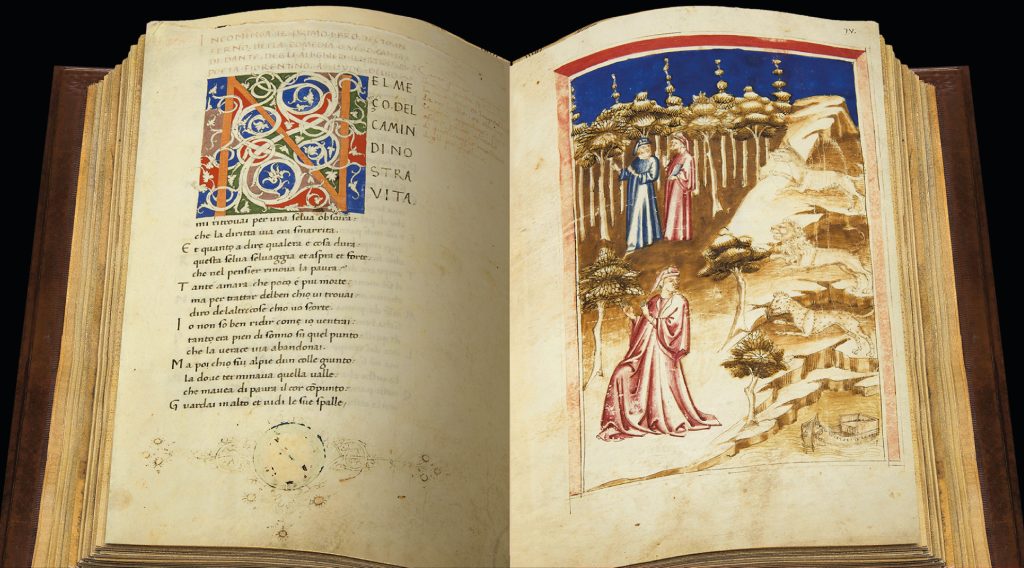 INCOMINCIA IL PRIMO
FERNO, DELLA COMEDIA
DI DANTE
POETA FIORENTINO
N EL ME
ÇO DEL
CAMIN
DI NO
STRA
VITA
mi ritrouai per una selua obscura:
che la diritta uia era smarrita.
Et quanto a dire qualera e cosa dura:
questa selua seluaggia et aspra et forte.
che nel pensier rinoua la paura:
Tante amara che poco e piu morte.
ma per trattar delben chio ui trouai
diro delaltre cose chio uo scorte.
Io non so ben ridir come io uentrai:
tanto era pien di sonno su quel punto
che la uerace uia abandonai.
Ma poi chio fui alpie dun colle giunto:
la doue terminaua quella ualle:
che mauea di paura il cor cōpunto:
Guardai in alto et uidi le sue spalle,